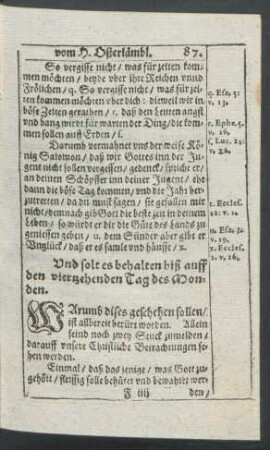 vom H. Osterlämbl. 87.
So vergisse nicht / was für zeiten kom-
men möchten / beyde vber ihre Reichen vnnd
Frölichen / q. So vergisse nicht / was für zei-
ten kommen möchten vber dich: dieweil wir in
böse Zeiten gerathen / r. daß den Leuten angst
vnd bang würdt für warten der Ding / die kom-
men sollen auff Erden / s.
Darumb vermahnet vns der weise Kö-
nig Salomon / daß wir Gottes inn der Ju-
gent nicht sollen vergessen / gedenck / spricht er /
an deinen Schöpffer inn deiner Jugent / ehe
dann die böse Tag kommen / vnd die Jahr her-
zutretten / da du must sagen / sie gefallen mir
nicht / demnach gib Gott die beste zeit in deinem
Leben / so würdt er dir die Güte des Lands zu-
geniessen geben / u. dem Sünder aber gibt er
Vnglück / daß er es samle vnd häuffe / x.
Vnd solt es behalten biß auff
den viertzehenden Tag des Mon-
den.
WArumb dises geschehen sollen /
ist allbereit berürt worden. Allein
seind noch zwey Stuck zumelden /
darauff vnsere Christliche Betrachtungen se-
hen werden.
Einmal / daß das jenige / was Gott zu-
gehört / fleissig solle behütet vnd bewahrt wer-
F iiij den /
q. Esa. 5:
v. 13.
r. Ephe. 5.
v. 16.
s. Luc. 21:
v. 26.
t. Eccles.
12: v. 1.
u. Esa. 1:
v. 19.
x. Eccles.
2. v. 26.